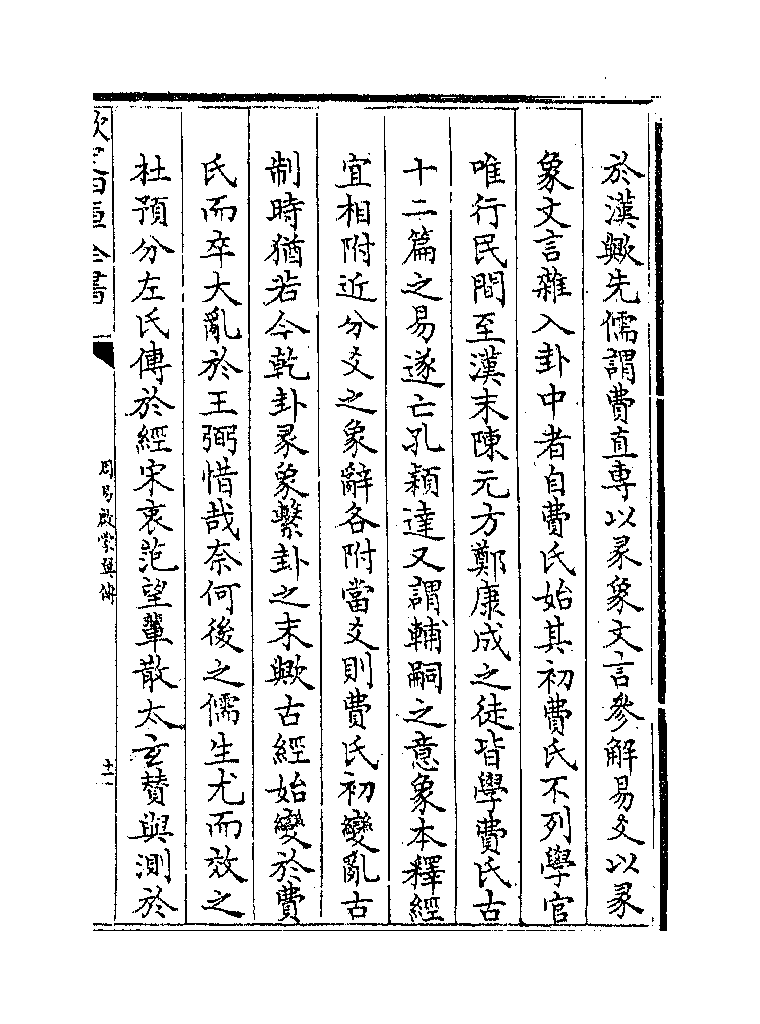 於漢歟先儒謂費直専以彖象文言參解易爻以彖
象文言雜入卦中者自費氏始其初費氏不列學官
唯行民間至漢末陳元方鄭康成之徒皆學費氏古
十二篇之易遂亡孔穎達又謂輔嗣之意象本釋經
宜相附近分爻之象辭各附當爻則費氏初變亂古
制時猶若今乾卦彖象繫卦之末歟古經始變於費
氏而卒大亂於王弼惜哉奈何後之儒生尤而效之
杜預分左氏傳於經宋衷范望軰散太玄賛與測於
欽定四庫全書
周易啟蒙翼傳
十一